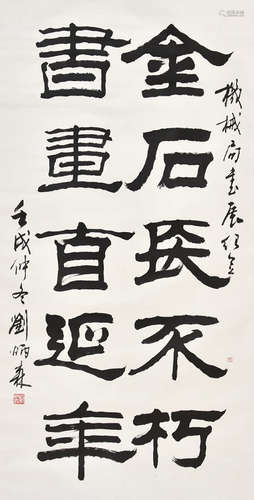 機械局書展紀念
金石長不朽
書畫延年
壬戌仲冬劉炳森